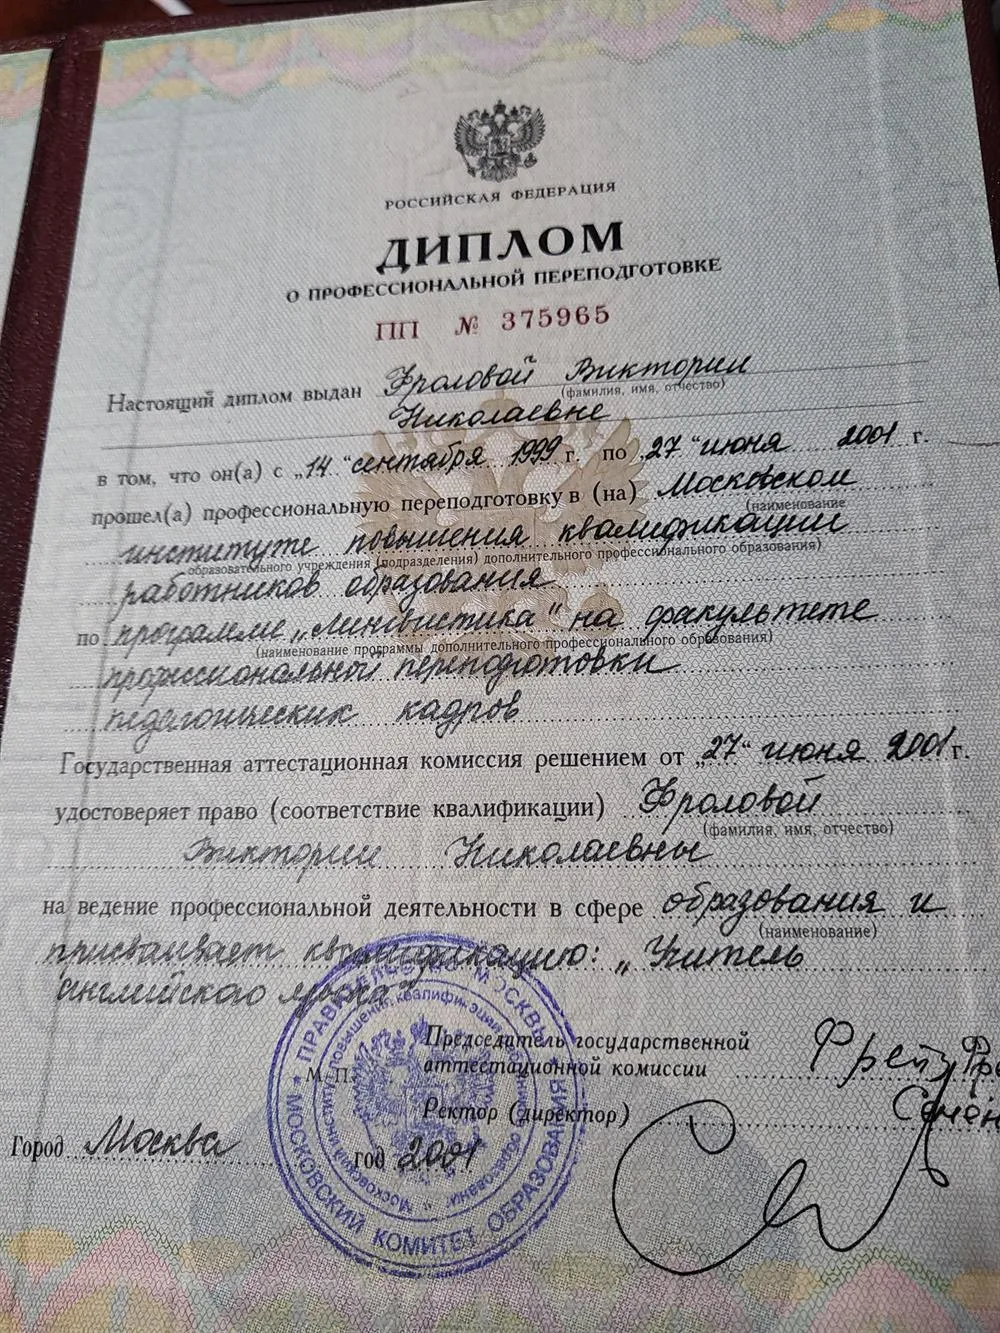 РОССИЙСКАЯ ФЕДЕРАЦИЯ
ДИПЛОМ
О ПРОФЕССИОНАЛЬНОЙ ПЕРЕПОДГОТОВКЕ
ПП № 375965
Настоящий диплом выдан Фроловой Виктории
(фамилия, имя, отчество)
Николаевне
в том, что он(а) с „14 " сентября 1999 г. по „27 " июня 2001 г.
прошел(а) профессиональную переподготовку в (на) Московском
(наименование
институте повышения квалификации
образовательного учреждения (подразделения) дополнительного профессионального образования)
работников образования
по программе „Лингвистика" на факультете
(наименование программы дополнительного профессионального образования)
профессиональной переподготовки
педагогических кадров
Государственная аттестационная комиссия решением от „27" июня 2001 г.
удостоверяет право (соответствие квалификации) Фроловой
(фамилия, имя, отчество)
Виктории Николаевны
на ведение профессиональной деятельности в сфере образования и
(наименование)
присваивает квалификацию: „Учитель
английского языка"
Председатель государственной
аттестационной комиссии
М. П.
Ректор (директор)
Город Москва год 2001
ПРАВИТЕЛЬСТВО МОСКВЫ * МОСКОВСКИЙ КОМИТЕТ ОБРАЗОВАНИЯ *
Московский институт повышения квалификации работников образования